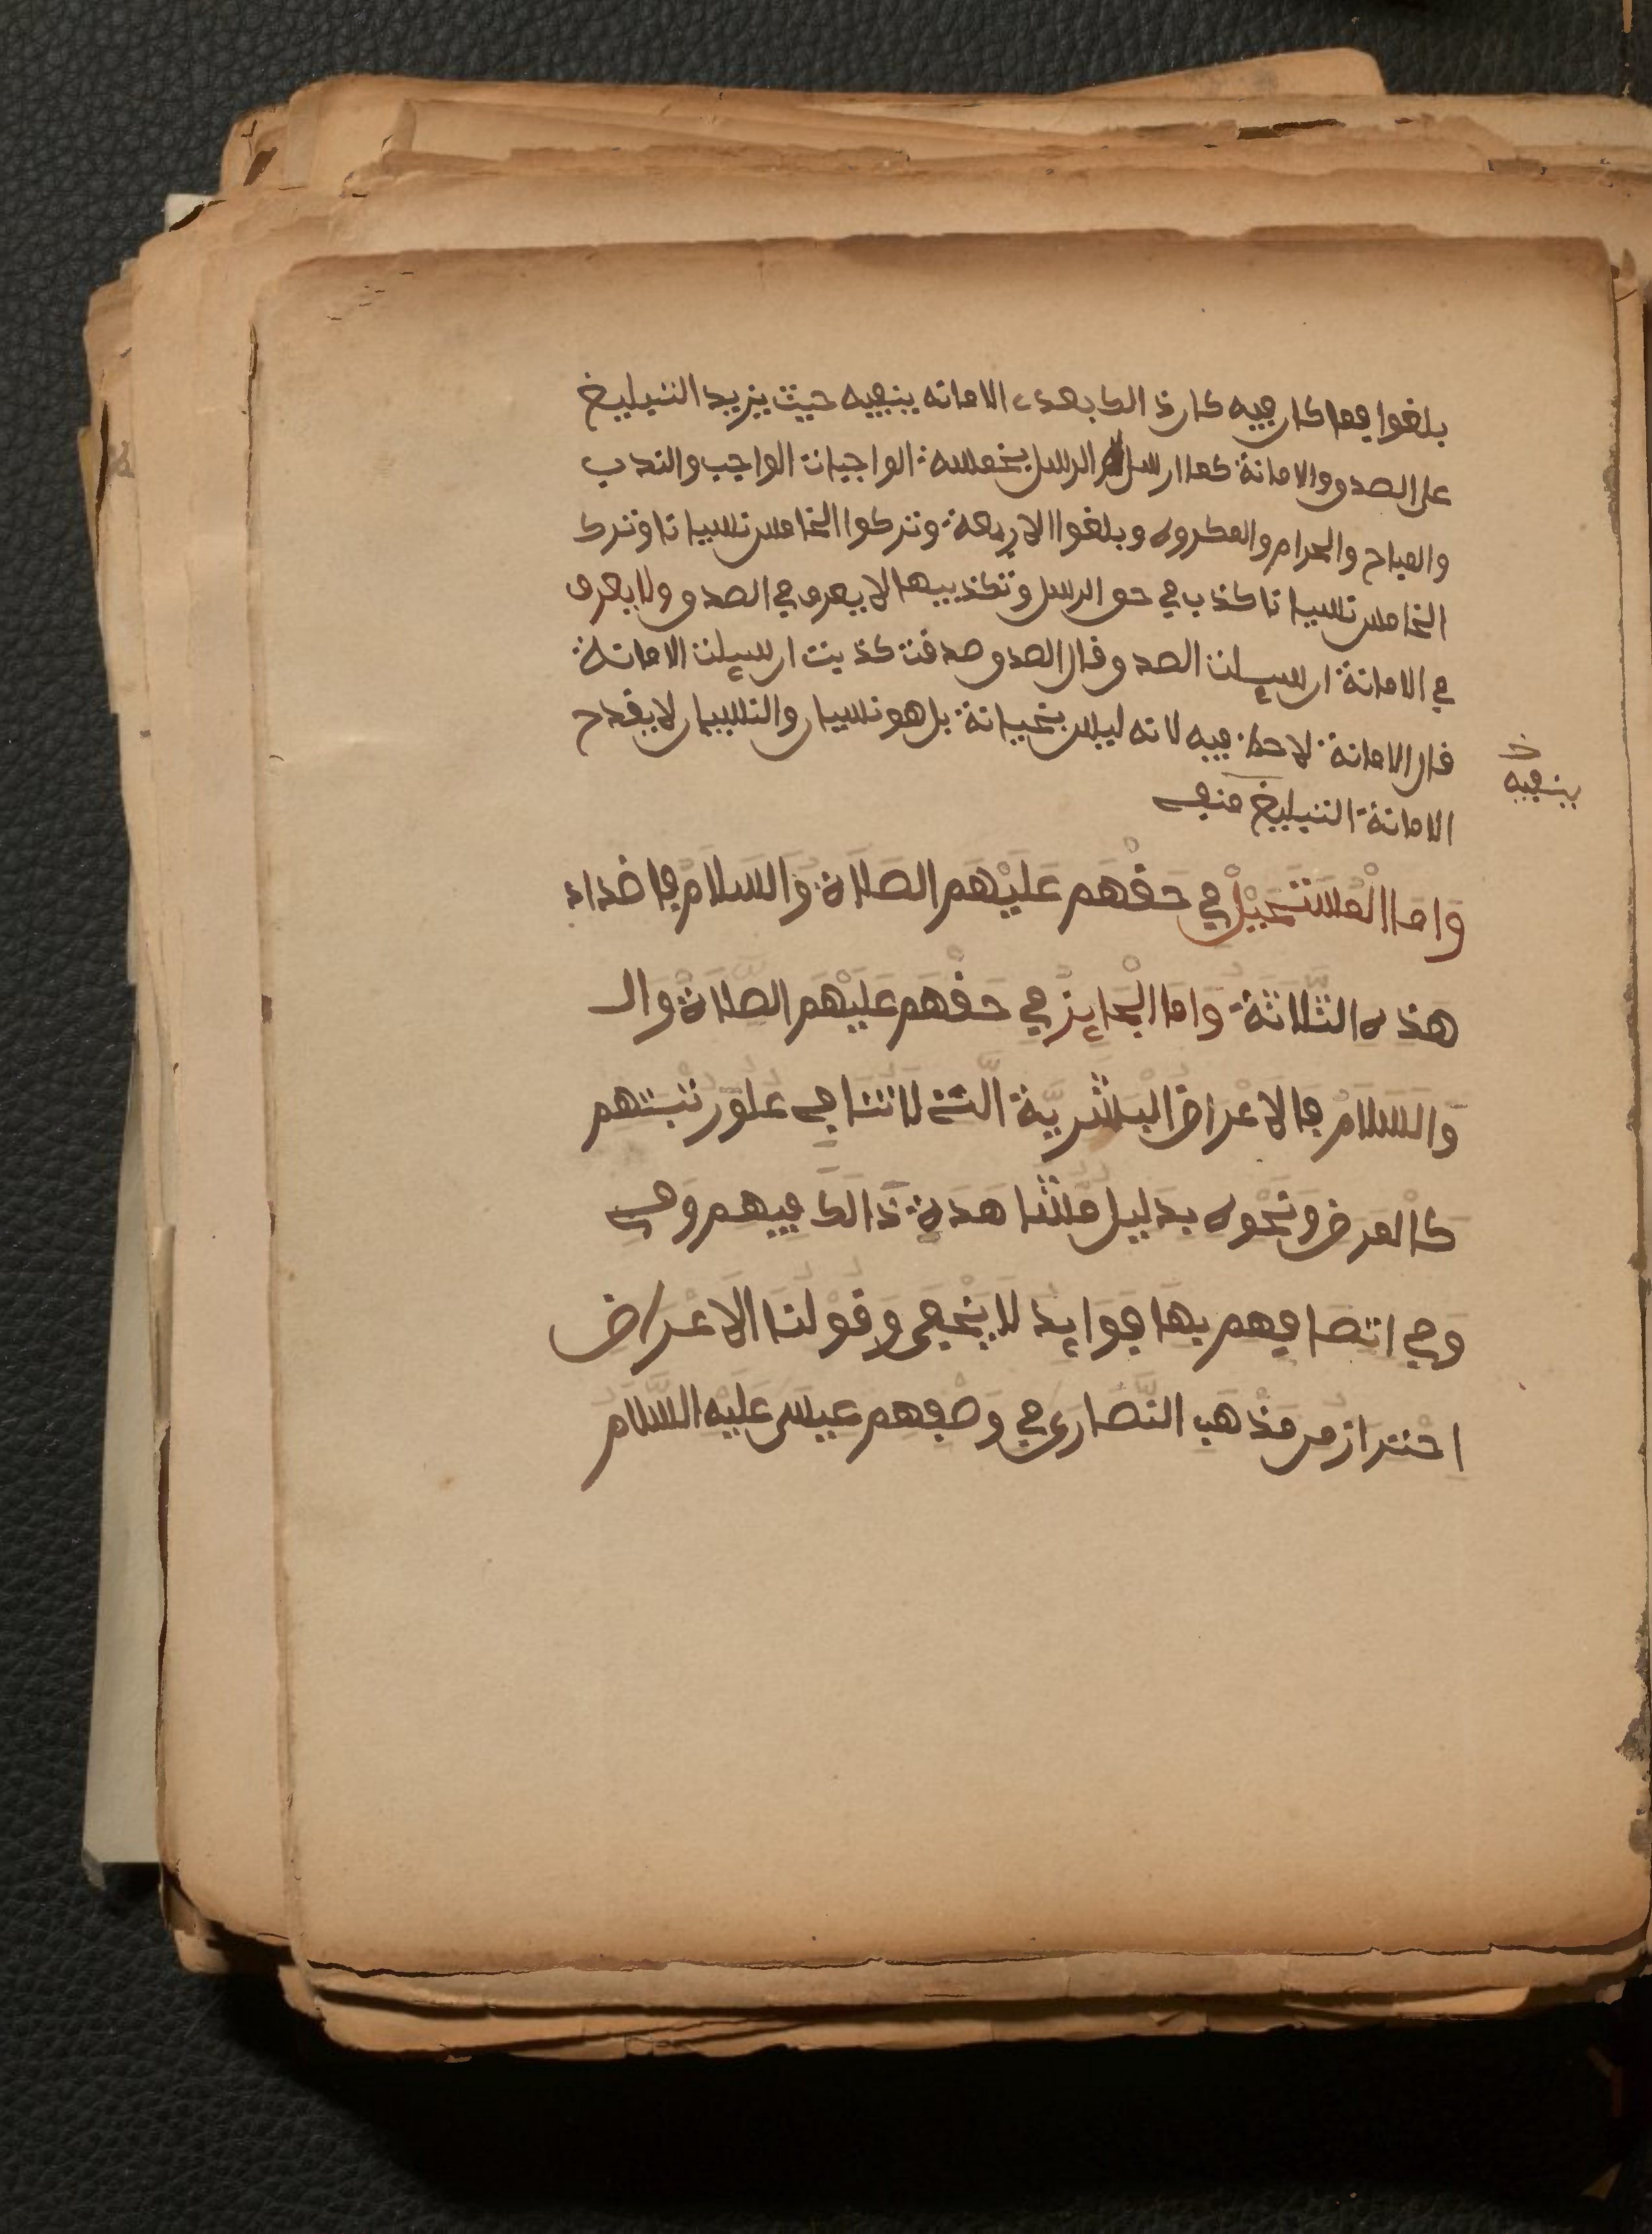 بلغوا فما كان فيه كان ذالك بعدى الامانه ينفيه حيث يزيد التبليغ
على الصدق والامانة كما ارسل الرسل بخمسه الواجبات الواجب والندب
والمباح والحرام والمكروه وبلغوا الاربعة وتركوا الخامس نسيانا وترك
الخامس نسيانا كذب في حق الرسل وتكذيبها لا يعرف في الصدق ولا يعرف
في الامانة ان سيلت الصدق قال الصدق صدقت كذبت ان سيلت الامانة
قال الامانة لاحظ فيه لانه ليس بخيانة بل هو نسيان والنسيان لا يقدح
الامانة التبليغ منفي
خ
ينفيه
وَامَا الْمُسْتَحِيلُ في حَقِّهِم عَلَيْهِم الصَلَاة وَالسَلَامُ فاضداد
هَذه الثلَاثَة وَامَا الْجَايِزُ في حَقِّهِم عَلَيْهِم الصلَاة وَال
وَالسَلَامُ فالاعْرَاض البَشَريَّة الَّتي لَا تنَافي عُلُوّ رتْبَتهم
كالمرض وَنَحْوه بدَليل مُشَاهَدَة ذَالكَ فيهم وَفي
وَفي اتصَافهم بها فَوَايد لَا يَخْفى وَقَوْلنَا الاعْرَاض
احْتراز من مَذْهَب النَّصَارى في وَصْفهم عيسَى عَلَيْه السَّلَام